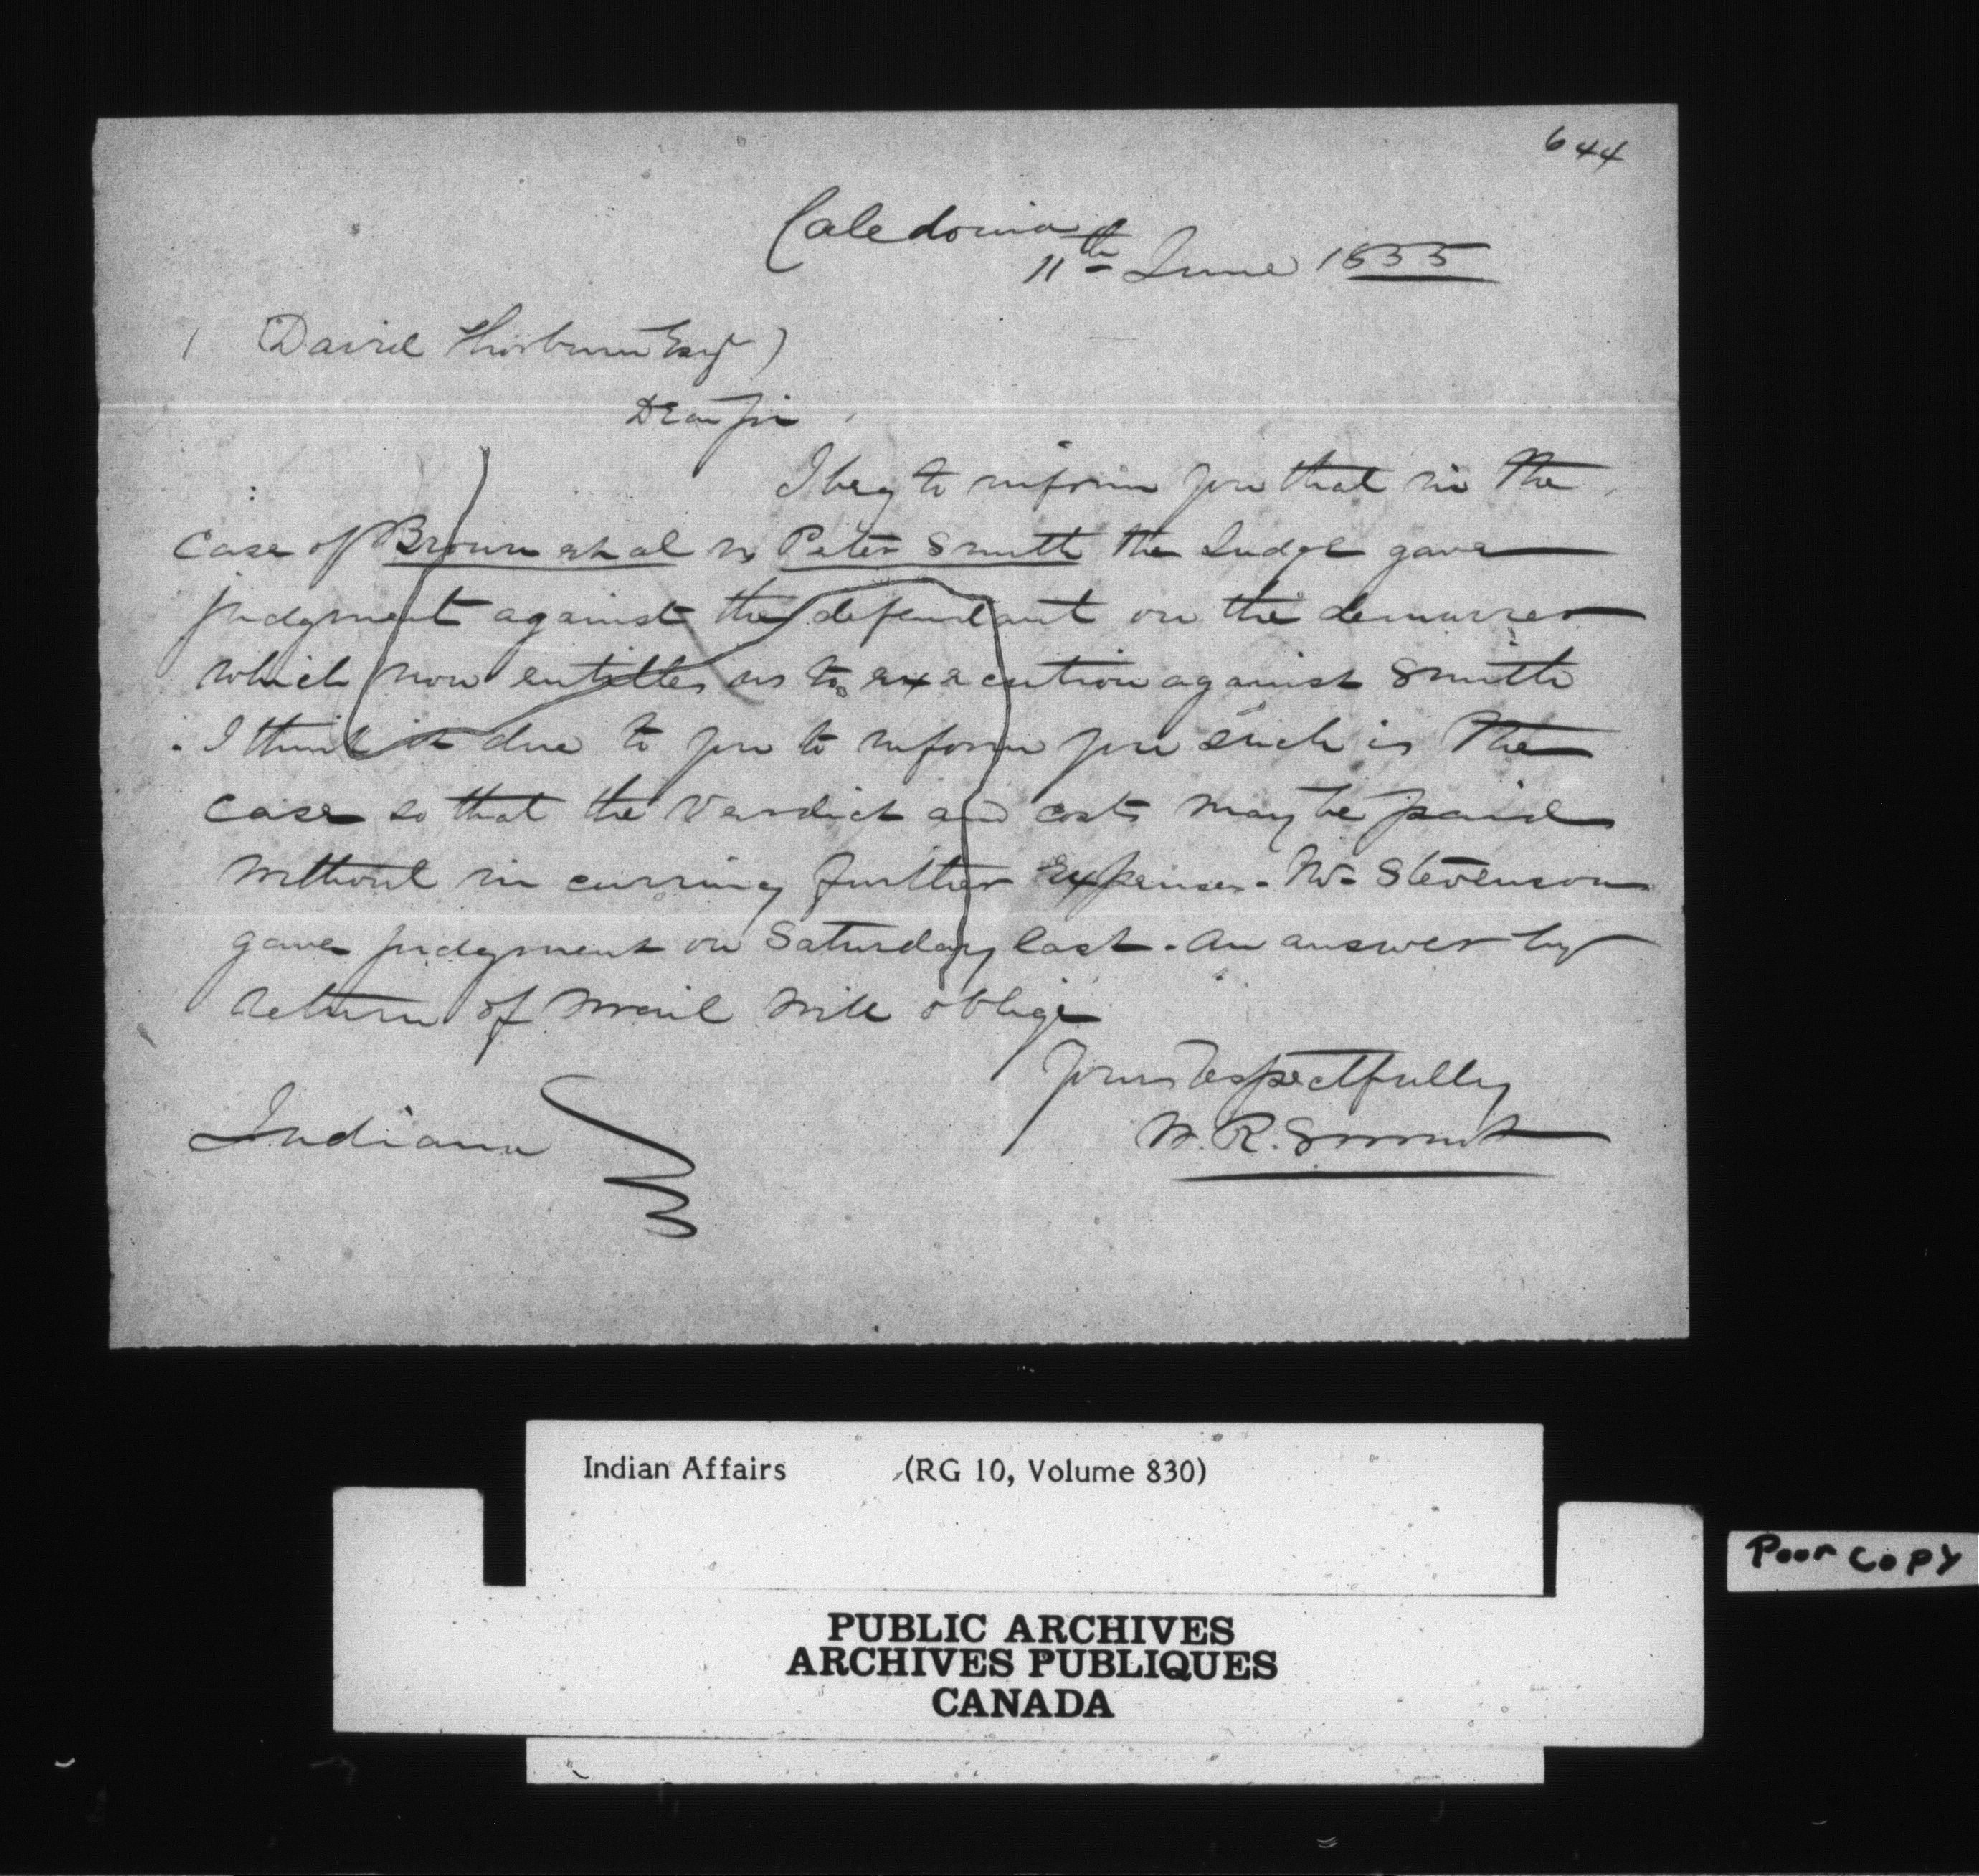 644
Caledonia
11th June 1855
(David Thorburn Esqr)
Dear Sir
I beg to inform you that in the
case of Brown et al vs Peter Smith the Judge gave
judgment against the defendant on the demurrer
which now entitles us to execution against Smith
. I think it due to you to inform you such is the
case so that the Verdict and costs may be paid
without in curring further expenses - Mr Stevenson
gave judgment on Saturday last - An answer by
return of mail will oblige
Yours respectfully
W. R.
Indiana
Indian Affairs (RG 10, Volume 830)
Poor Copy
PUBLIC ARCHIVES
ARCHIVES PUBLIQUES
CANADA